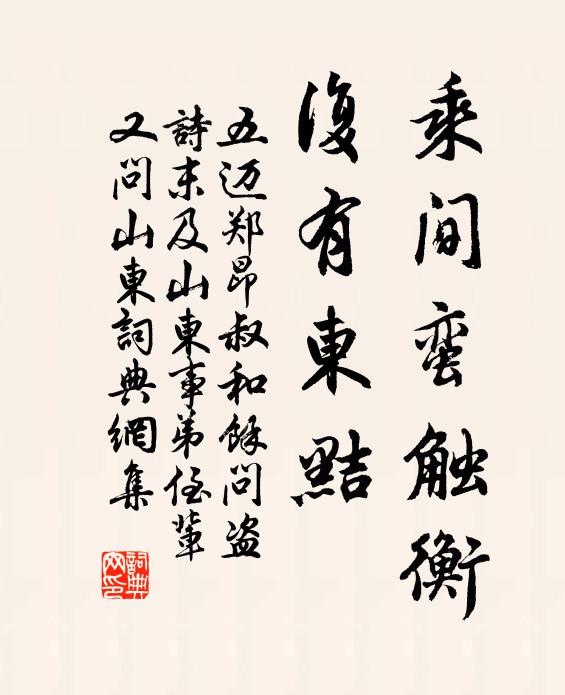 乘间蛮触衡
復有東黠
五迈郑昂叔和餘问盗
詩末及山東事弟侄輩
又问山東詞典網集
詞典网印